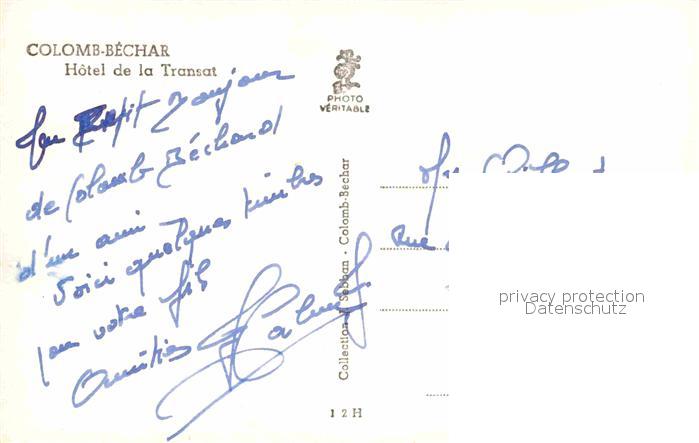 COLOMB-BÉCHAR
Hôtel de la Transat
Petit Bonjour
de Colomb Béchard
d'un ami
Voici quelques timbres
pour votre fils
Amitiés
PHOTO
VÉRITABLE
Collection J. Sebban - Colomb-Bechar
12H
Rue
privacy protection
Datenschutz